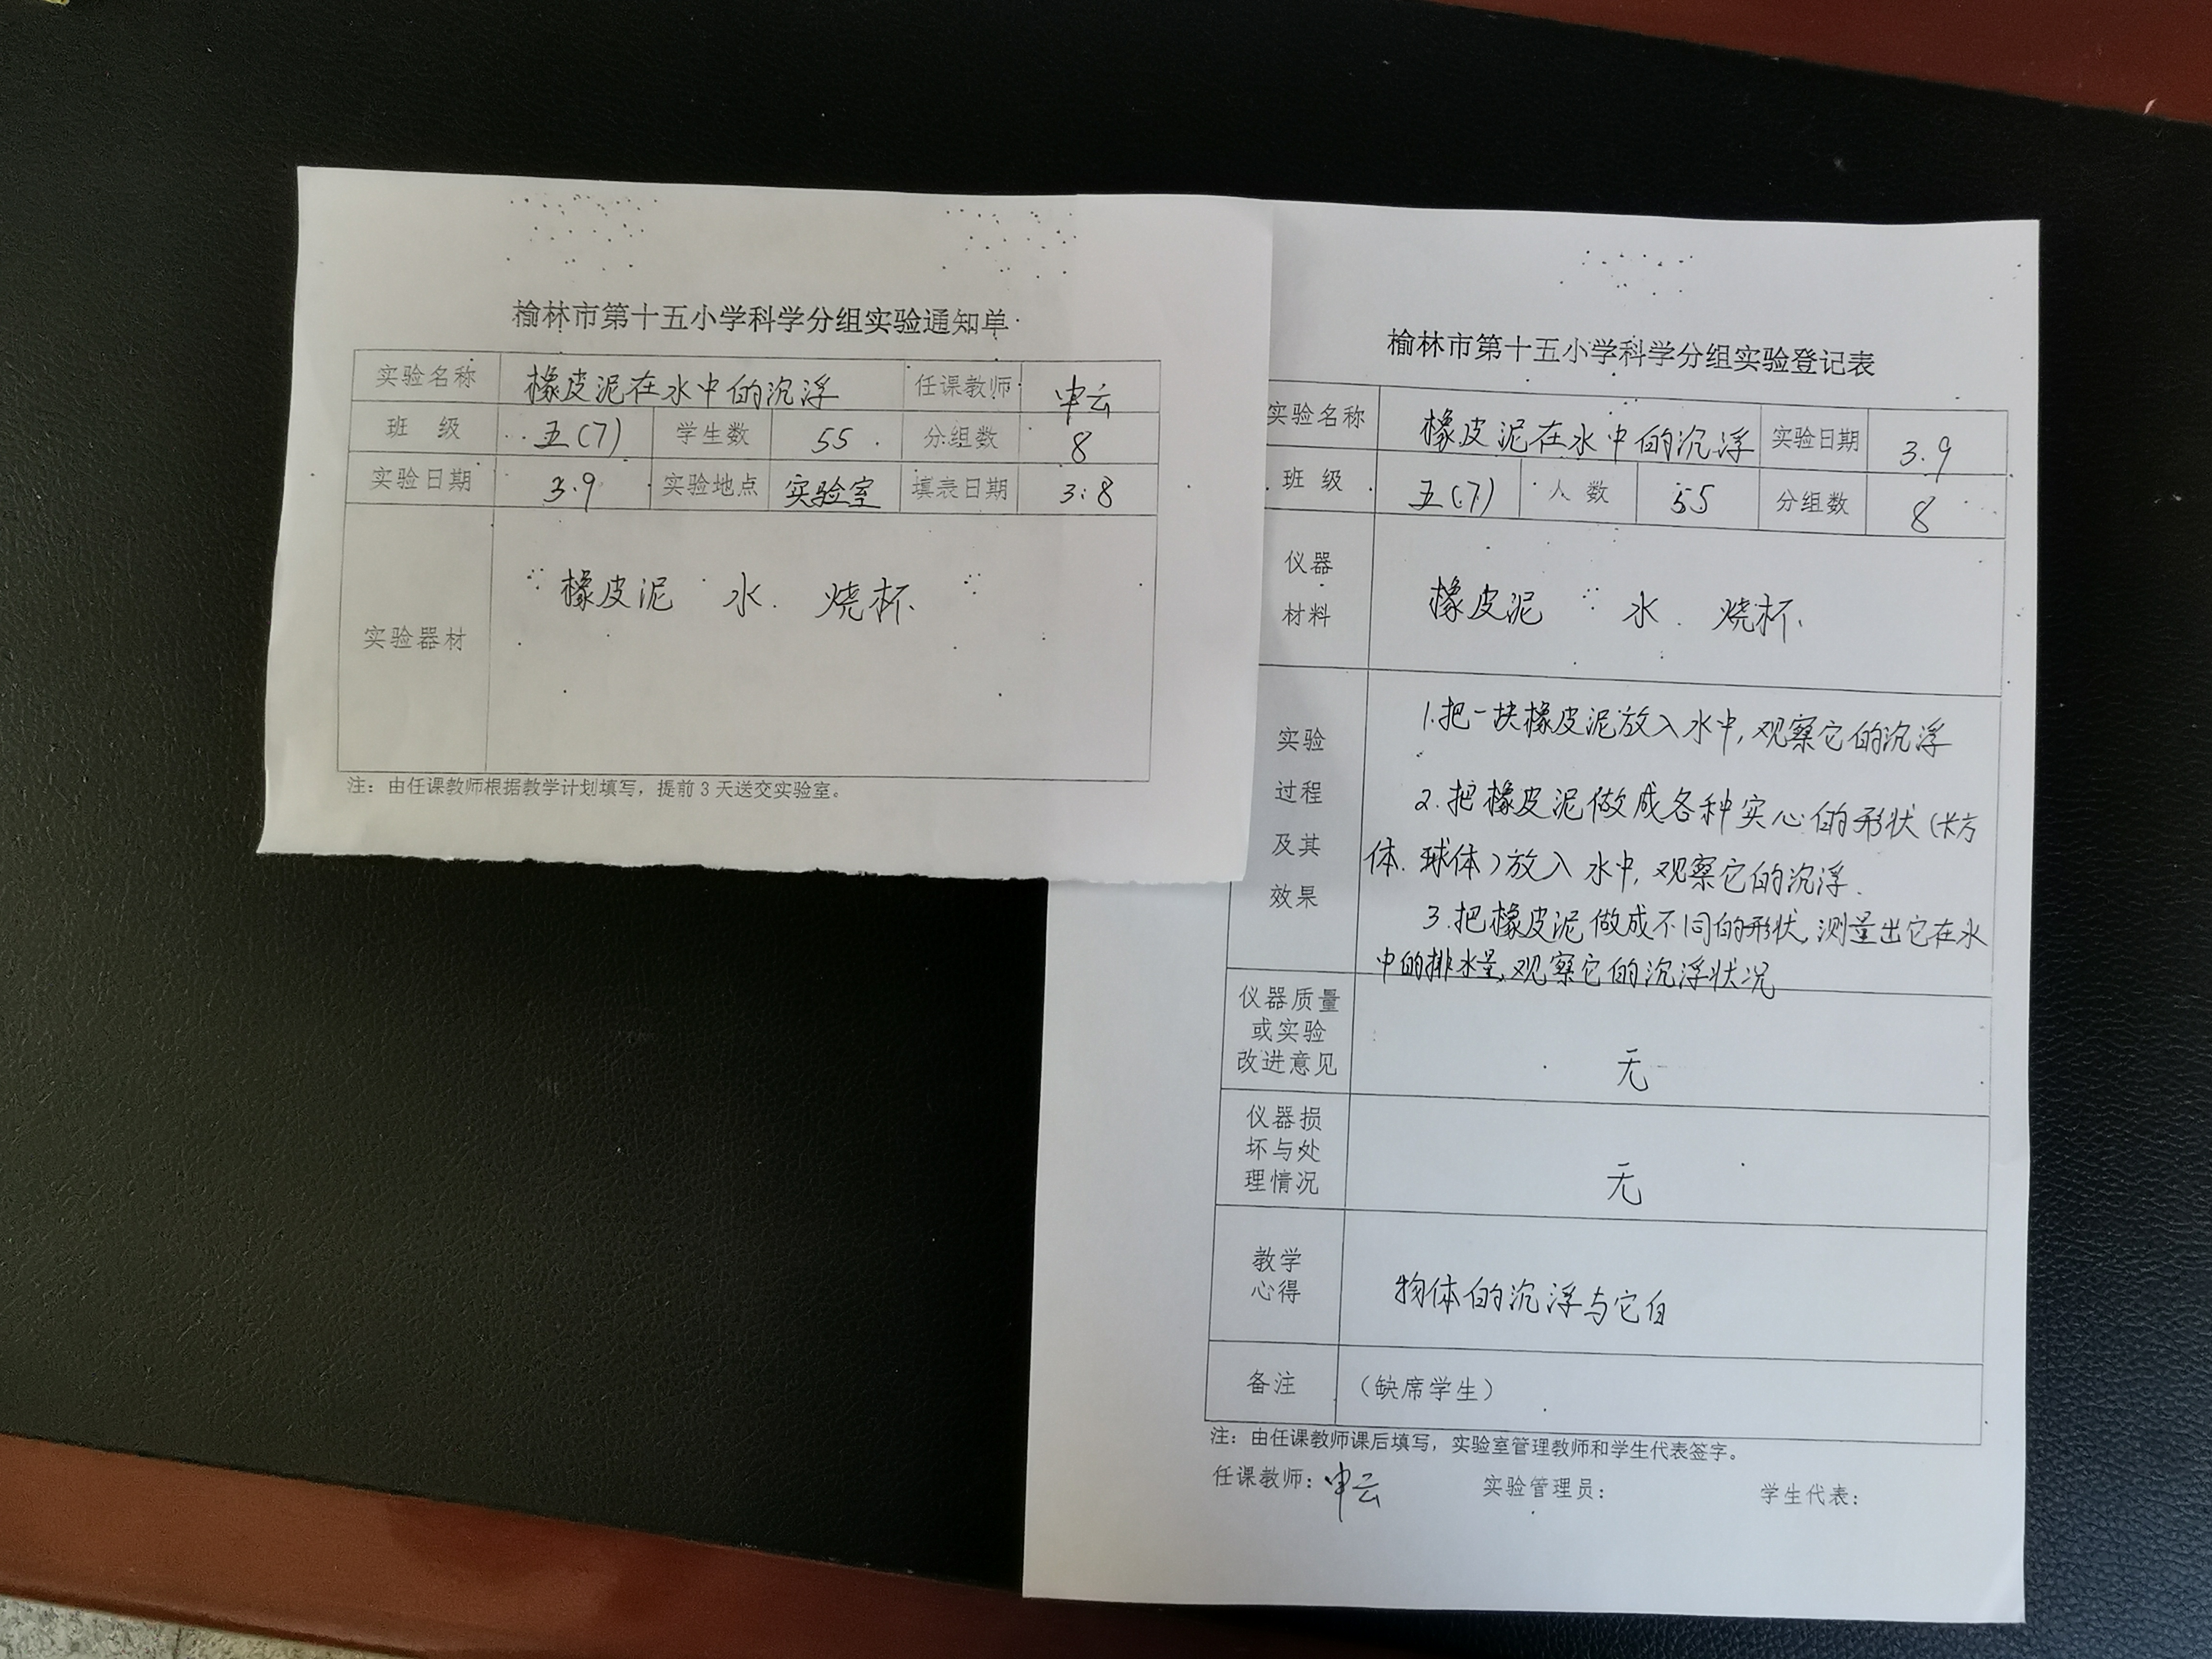 榆林市第十五小学科学分组实验通知单
实验名称 橡皮泥在水中的沉浮 任课教师 申云
班 级 五(7) 学生数 55 分组数 8
实验日期 3.9 实验地点 实验室 填表日期 3.8
实验器材 橡皮泥 水 烧杯
注：由任课教师根据教学计划填写，提前3天送交实验室。
榆林市第十五小学科学分组实验登记表
实验名称 橡皮泥在水中的沉浮 实验日期 3.9
班 级 五(7) 人 数 55 分组数 8
仪器
材料
橡皮泥 水 烧杯
实验
过程
及其
效果
1.把一块橡皮泥放入水中,观察它的沉浮
2.把橡皮泥做成各种实心的形状(长方
体.球体)放入水中,观察它的沉浮.
3.把橡皮泥做成不同的形状,测量出它在水
中的排水量,观察它的沉浮状况
仪器质量
或实验
改进意见
无
仪器损
坏与处
理情况
无
教学
心得
物体的沉浮与它自
备注 （缺席学生）
注：由任课教师课后填写，实验室管理教师和学生代表签字。
任课教师：申云 实验管理员： 学生代表：